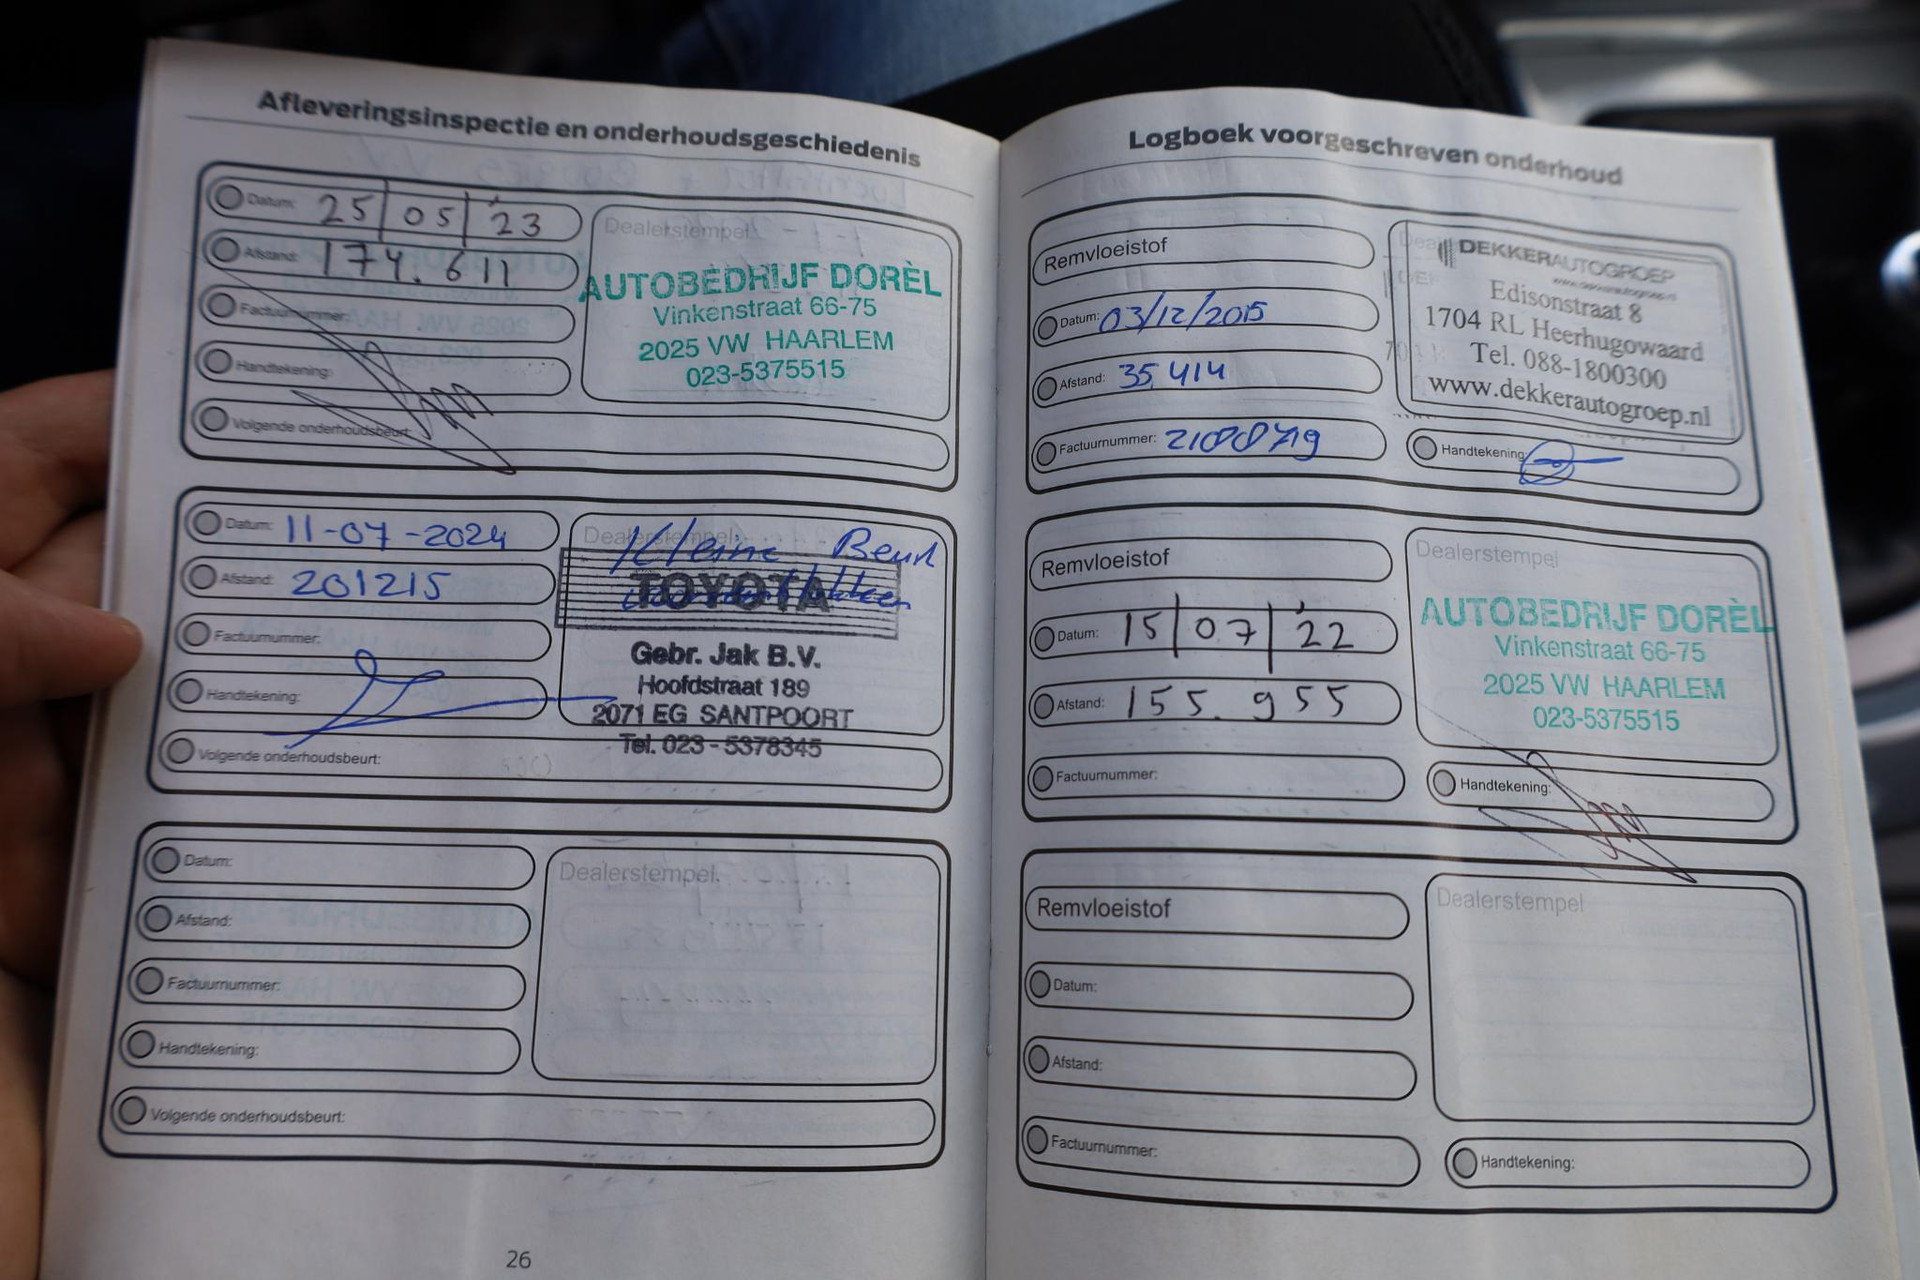 Afleveringsinspectie en onderhoudsgeschiedenis
Datum: 25 | 05 | '23
Afstand: 174.611
Factuurnummer:
Handtekening:
Volgende onderhoudsbeurt:
Dealerstempel
AUTOBEDRIJF DORÈL
Vinkenstraat 66-75
2025 VW HAARLEM
023-5375515
Datum: 11-07-2024
Afstand: 201215
Factuurnummer:
Handtekening:
Volgende onderhoudsbeurt:
Dealerstempel
Kleine Beurt
TOYOTA
Gebr. Jak B.V.
Hoofdstraat 189
2071 EG SANTPOORT
Tel. 023-5378345
Datum:
Afstand:
Factuurnummer:
Handtekening:
Volgende onderhoudsbeurt:
Dealerstempel
26
Logboek voorgeschreven onderhoud
Remvloeistof
Datum: 03/12/2015
Afstand: 35,414
Factuurnummer:
DEKKERAUTOGROEP
Edisonstraat 8
1704 RL Heerhugowaard
Tel. 088-1800300
www.dekkerautogroep.nl
Handtekening:
Remvloeistof
Datum: 15 | 07 | '22
Afstand: 155.955
Factuurnummer:
Dealerstempel
AUTOBEDRIJF DORÈL
Vinkenstraat 66-75
2025 VW HAARLEM
023-5375515
Handtekening:
Remvloeistof
Datum:
Afstand:
Factuurnummer:
Dealerstempel
Handtekening: